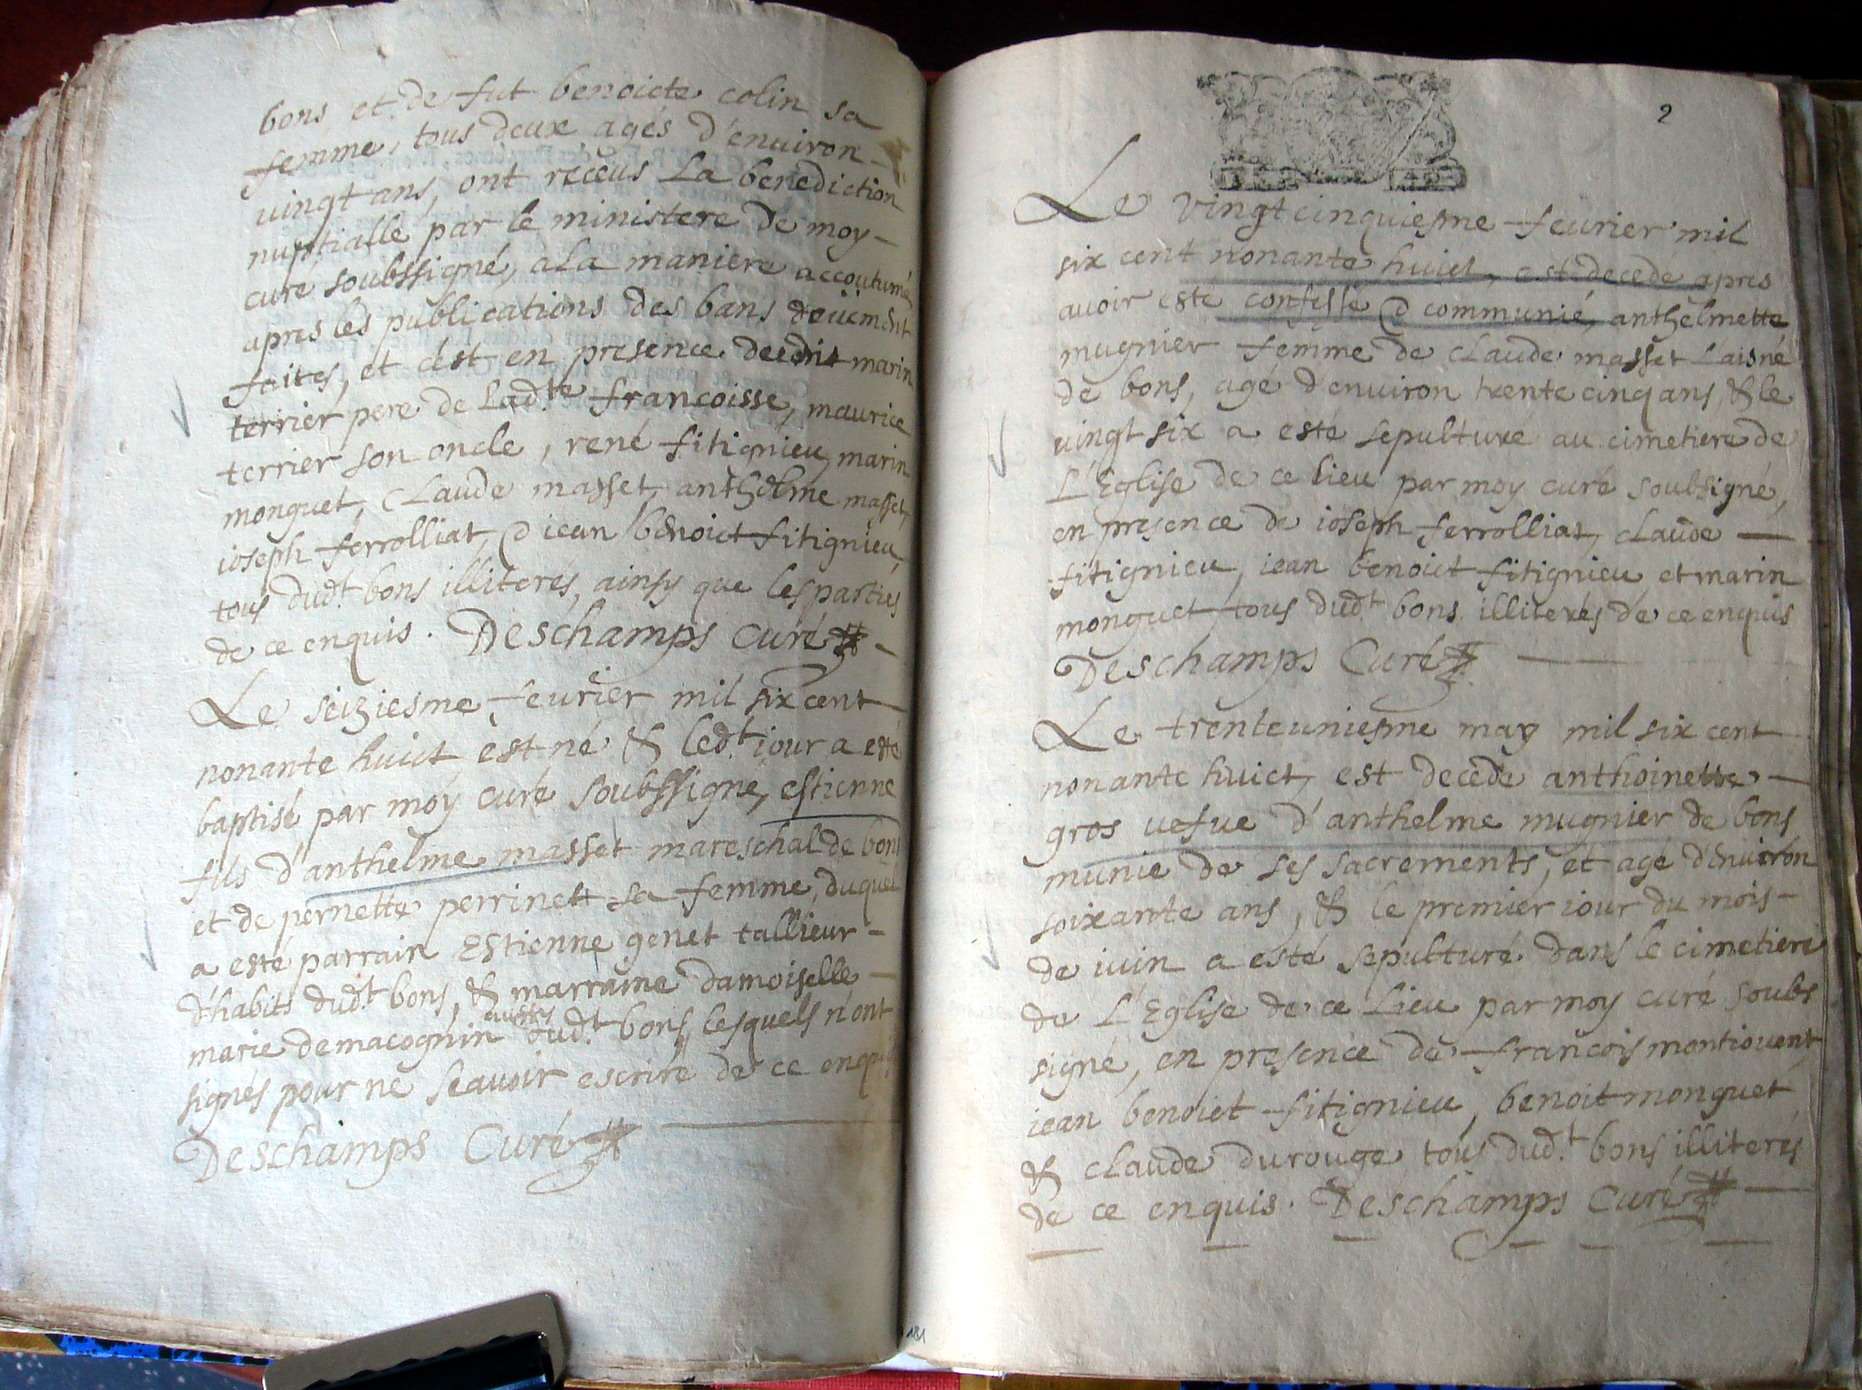 bons et de fut benoicte colin sa
femme, tous deux agés d'environ
vingt ans, ont receus La benediction
nuptialle par le ministere de moy
curé soubssigné, a La maniere accoutumé
apres les publications des bans deüement
faites, et c'est en presence marin
terrier pere de Ladte francoisse, maurice
terrier son oncle, rené fitignieu, marin
monguet, Claude masset, anthelme masset,
ioseph ferrolliat, & iean benoict fitignieu,
tous dudt bons illiterés, ainsy que les parties
de ce enquis. Deschamps Curé
Le seiziesme feurier mil six cent
nonante huict est né & ledt iour a esté
baptisé par moy curé soubssigné, estienne
fils d'anthelme masset mareschal de bons
et de pernette perrinett sa femme, duquel
a esté parrain Estienne genet tallieur
d'habits dudt bons, & marraine damoiselle
marie demacognin dudt bons, lesquels n'ont
signés pour ne scavoir escrire de ce enquis
Deschamps Curé
2
Le vingt cinquiesme feurier mil
six cent nonante huict, est decedé apres
avoir esté confessé & communié, anthelmette
mugnier femme de Claude masset Laisné
de bons, agé d'environ trente cinq ans, & le
vingt six a esté sepulture au cimetiere de
L'Eglise de ce lieu par moy curé soubsigné,
en presence de ioseph ferrolliat, claude
fitignieu, iean benoict fitignieu et marin
monguet, tous dudt bons illiterés de ce enquis
Deschamps Curé
Le trente uniesme may mil six cent
nonante huict, est decedé anthoinette
gros vefve d'anthelme mugnier de bons
munie de ses sacrements, et agé d'environ
soixante ans, & le premier iour du mois
de iuin a esté sepulturé dans le cimetiere
de L'Eglise de ce Lieu par moy curé soubs
signé, en presence de francois montiouent,
iean benoict fitignieu, benoit monguet,
& claude durouge tous dudt bons illiterés
de ce enquis. Deschamps Curé
181